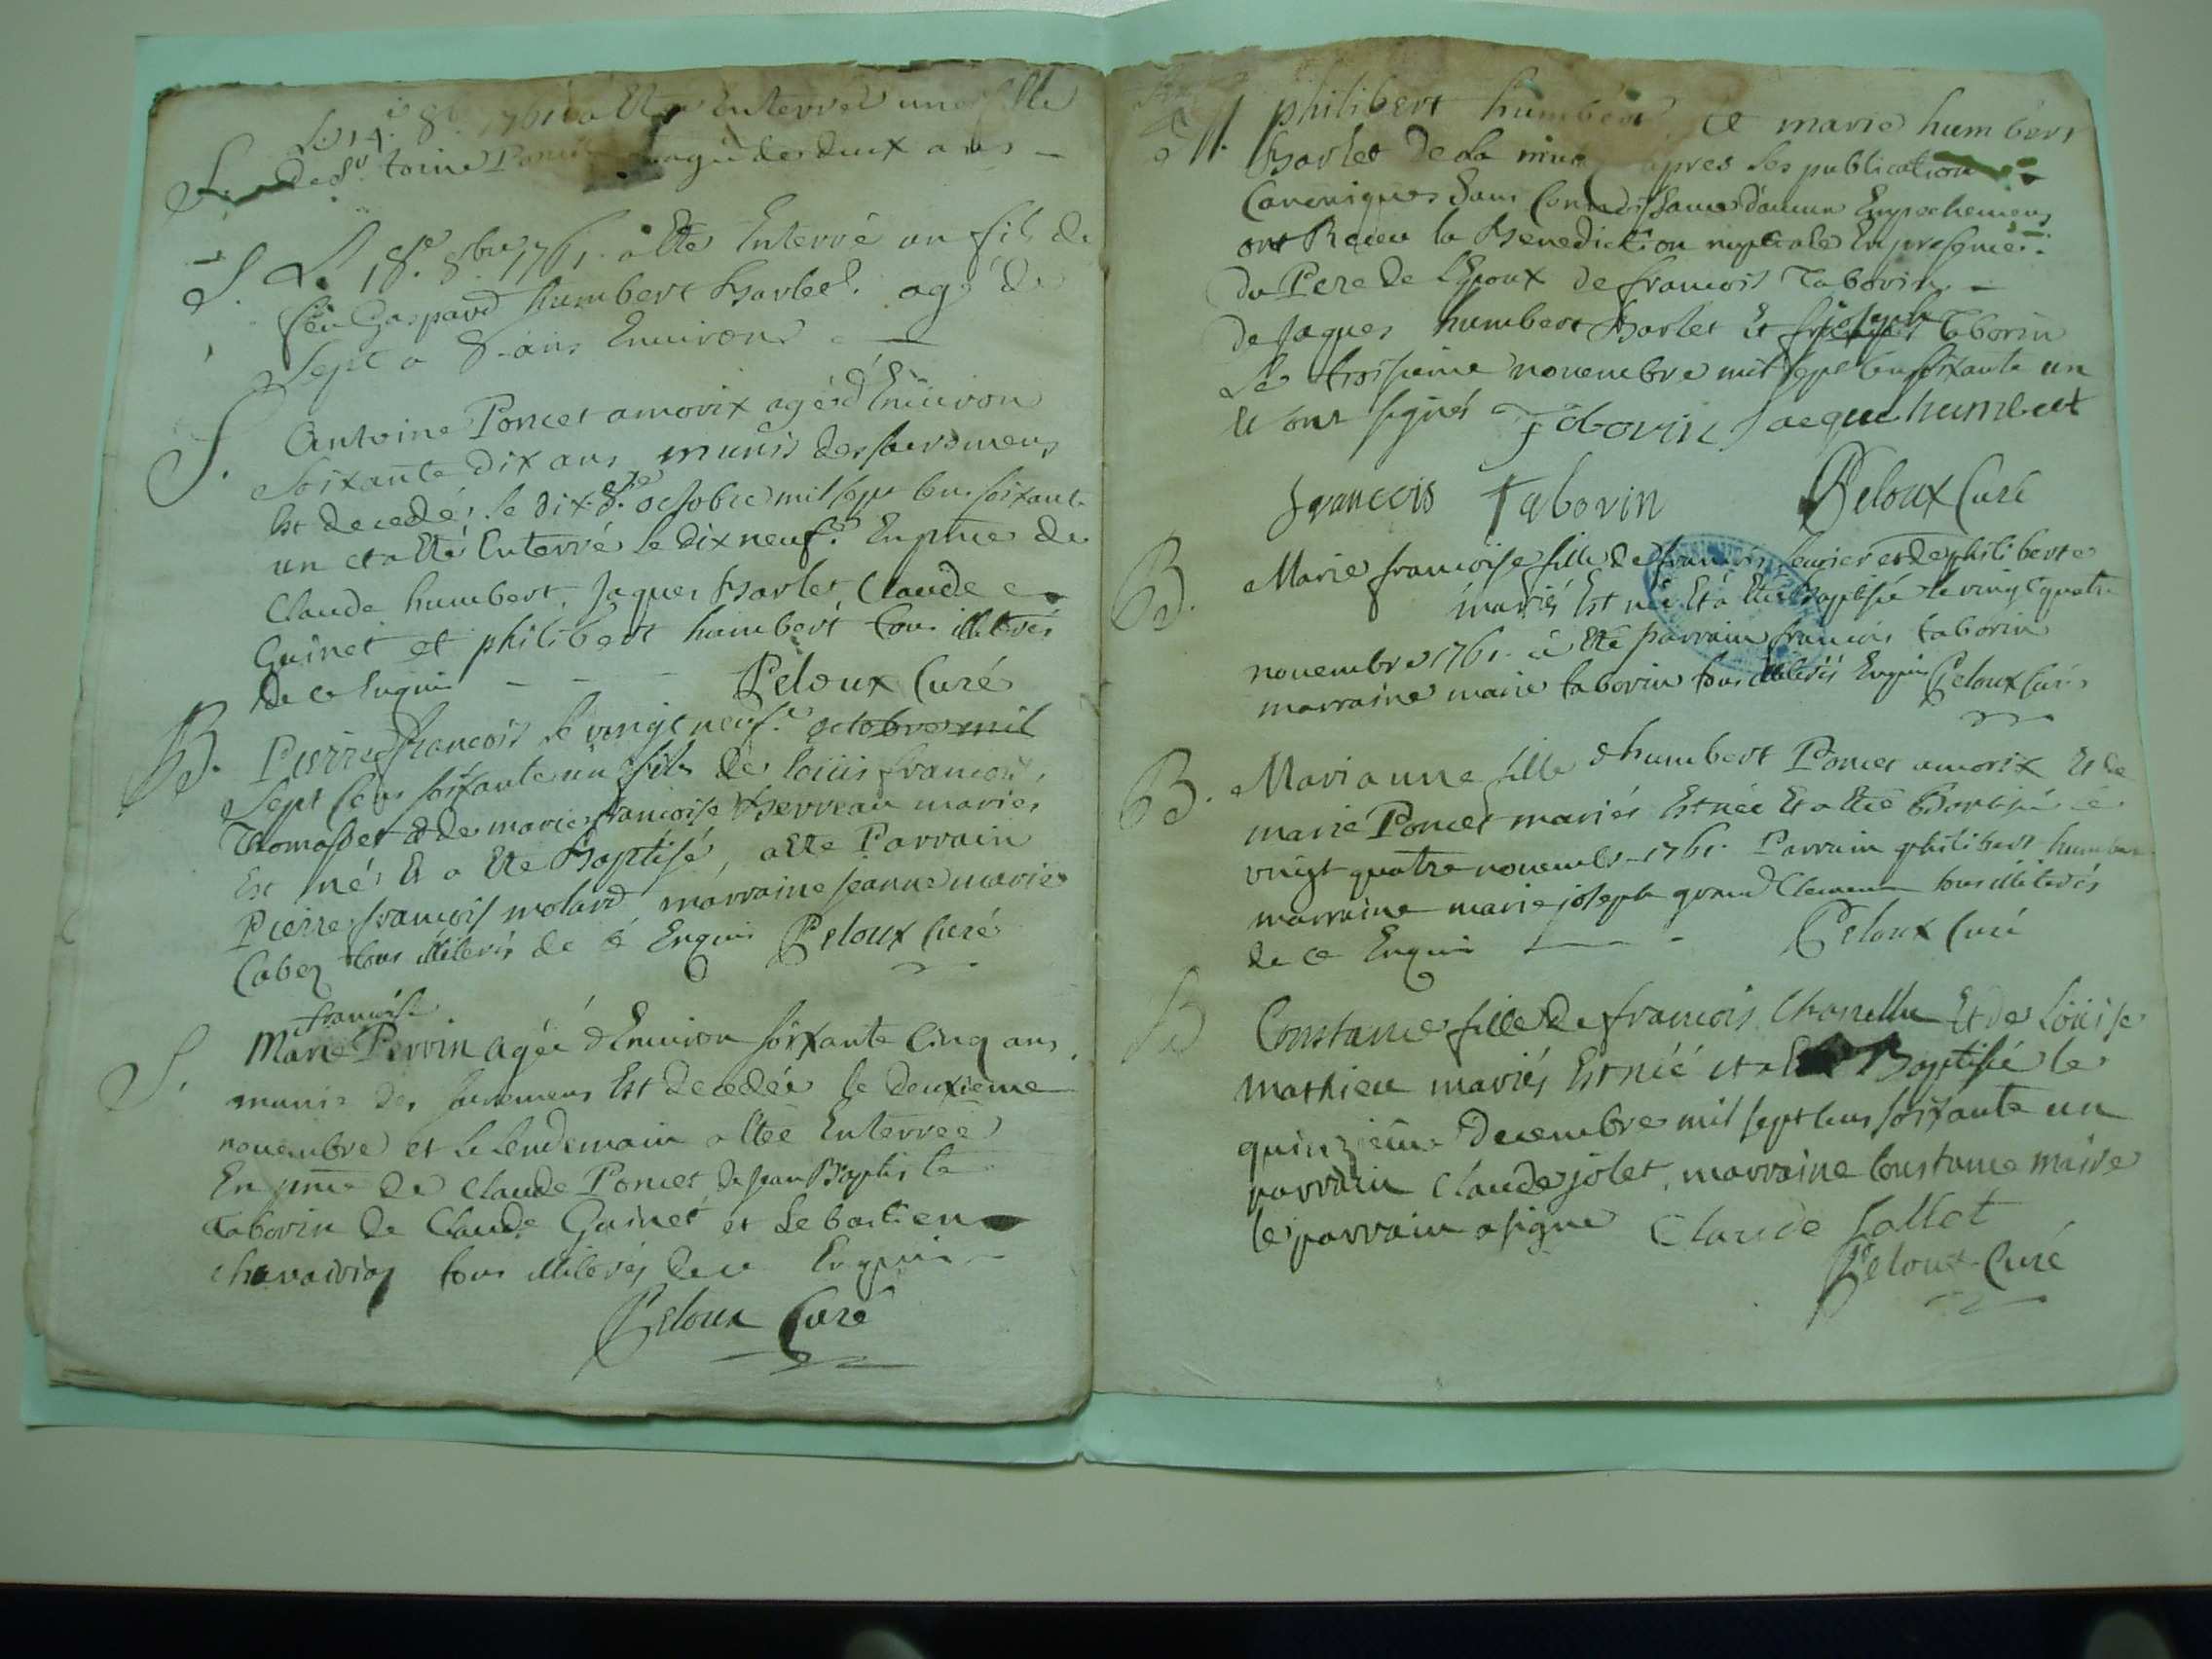 Le 14e 8bre 1761 a Ete Enterrée une fille
S. de Sr toine Poncet agée de deux ans
S. Le 18e 8bre 1761. a Eté Enterré un fils de
feu Gaspard humbert Barlet. agé de
Sept a 8. ans Environ
S. Antoine Poncet amorix agé d'Environ
soixante dix ans munis des sacremens
Est decedé, le dix 8e octobre mil sept cens soixante
un et a Eté Enterré le dix neufe. En pnce de
Claude humbert, Jaques Barlet, Claude
Guinet et philibert humbert tous illiterés
de ce Enquis Peloux Curé
B. Pierre francois le vingt neufe. octobre mil
sept cens soixante un fils de loüis francois
Thomasset & de marie francoise Berreau mariés
Est né & a Eté Baptisé, a Ete Parrain
Pierre francois molard marraine jeanne marie
Cabez tous illiterés de cé Enquis Peloux Curé
francoise
S. Marie Perrin agée d'Environ soixante Cinq ans
munie des sacremens Est decedée le deuxieme
novembre et le lendemain a Eteé Enterreé
En pnce de Claude Poncet de jean Baptiste
taborin de Claude Guinet et Sebastien
tous illiterés de ce Enquis
Peloux Curé
M. philibert humbert & marie humbert
Barlet de la apres les publications
Canoniques sans Connoissance d'aucun Empechement
ont Receu la Benediction nuptiale En presence
du Pere de l'Epoux de francois Taborin
de Jaques humbert Barlet Et joseph Taborin
Le troisieme novembre mil sept cens soixante un
& ont signés J taborin Jacque humbert
francois taborin Peloux Curé
B. Marie francoise fille de francois et de philiberte
mariés Est née Et a Eteé Baptisée le vingt quatre
novembre 1761. a Eté parrain francois taborin
marraine marie taborin tous illiterés Enquis Peloux Curé
B. Marianne fille d'humbert Poncet amorix Et de
marie Poncet mariés Est née Et a Eteé Baptisée le
vingt quatre novembre 1761. Parrain philibert humbert
marraine marie joseph grand Clement tous illiterés
de ce Enquis Peloux Curé
B Constance fille de francois Chanellu Et de Loüise
mathieu mariés Est neé et a Eté Baptisée le
quinzieme Decembre mil sept cens soixante un
parrain Claude jolet, marraine Constance maire
le parrain a signe Claude Jollet
Peloux Curé